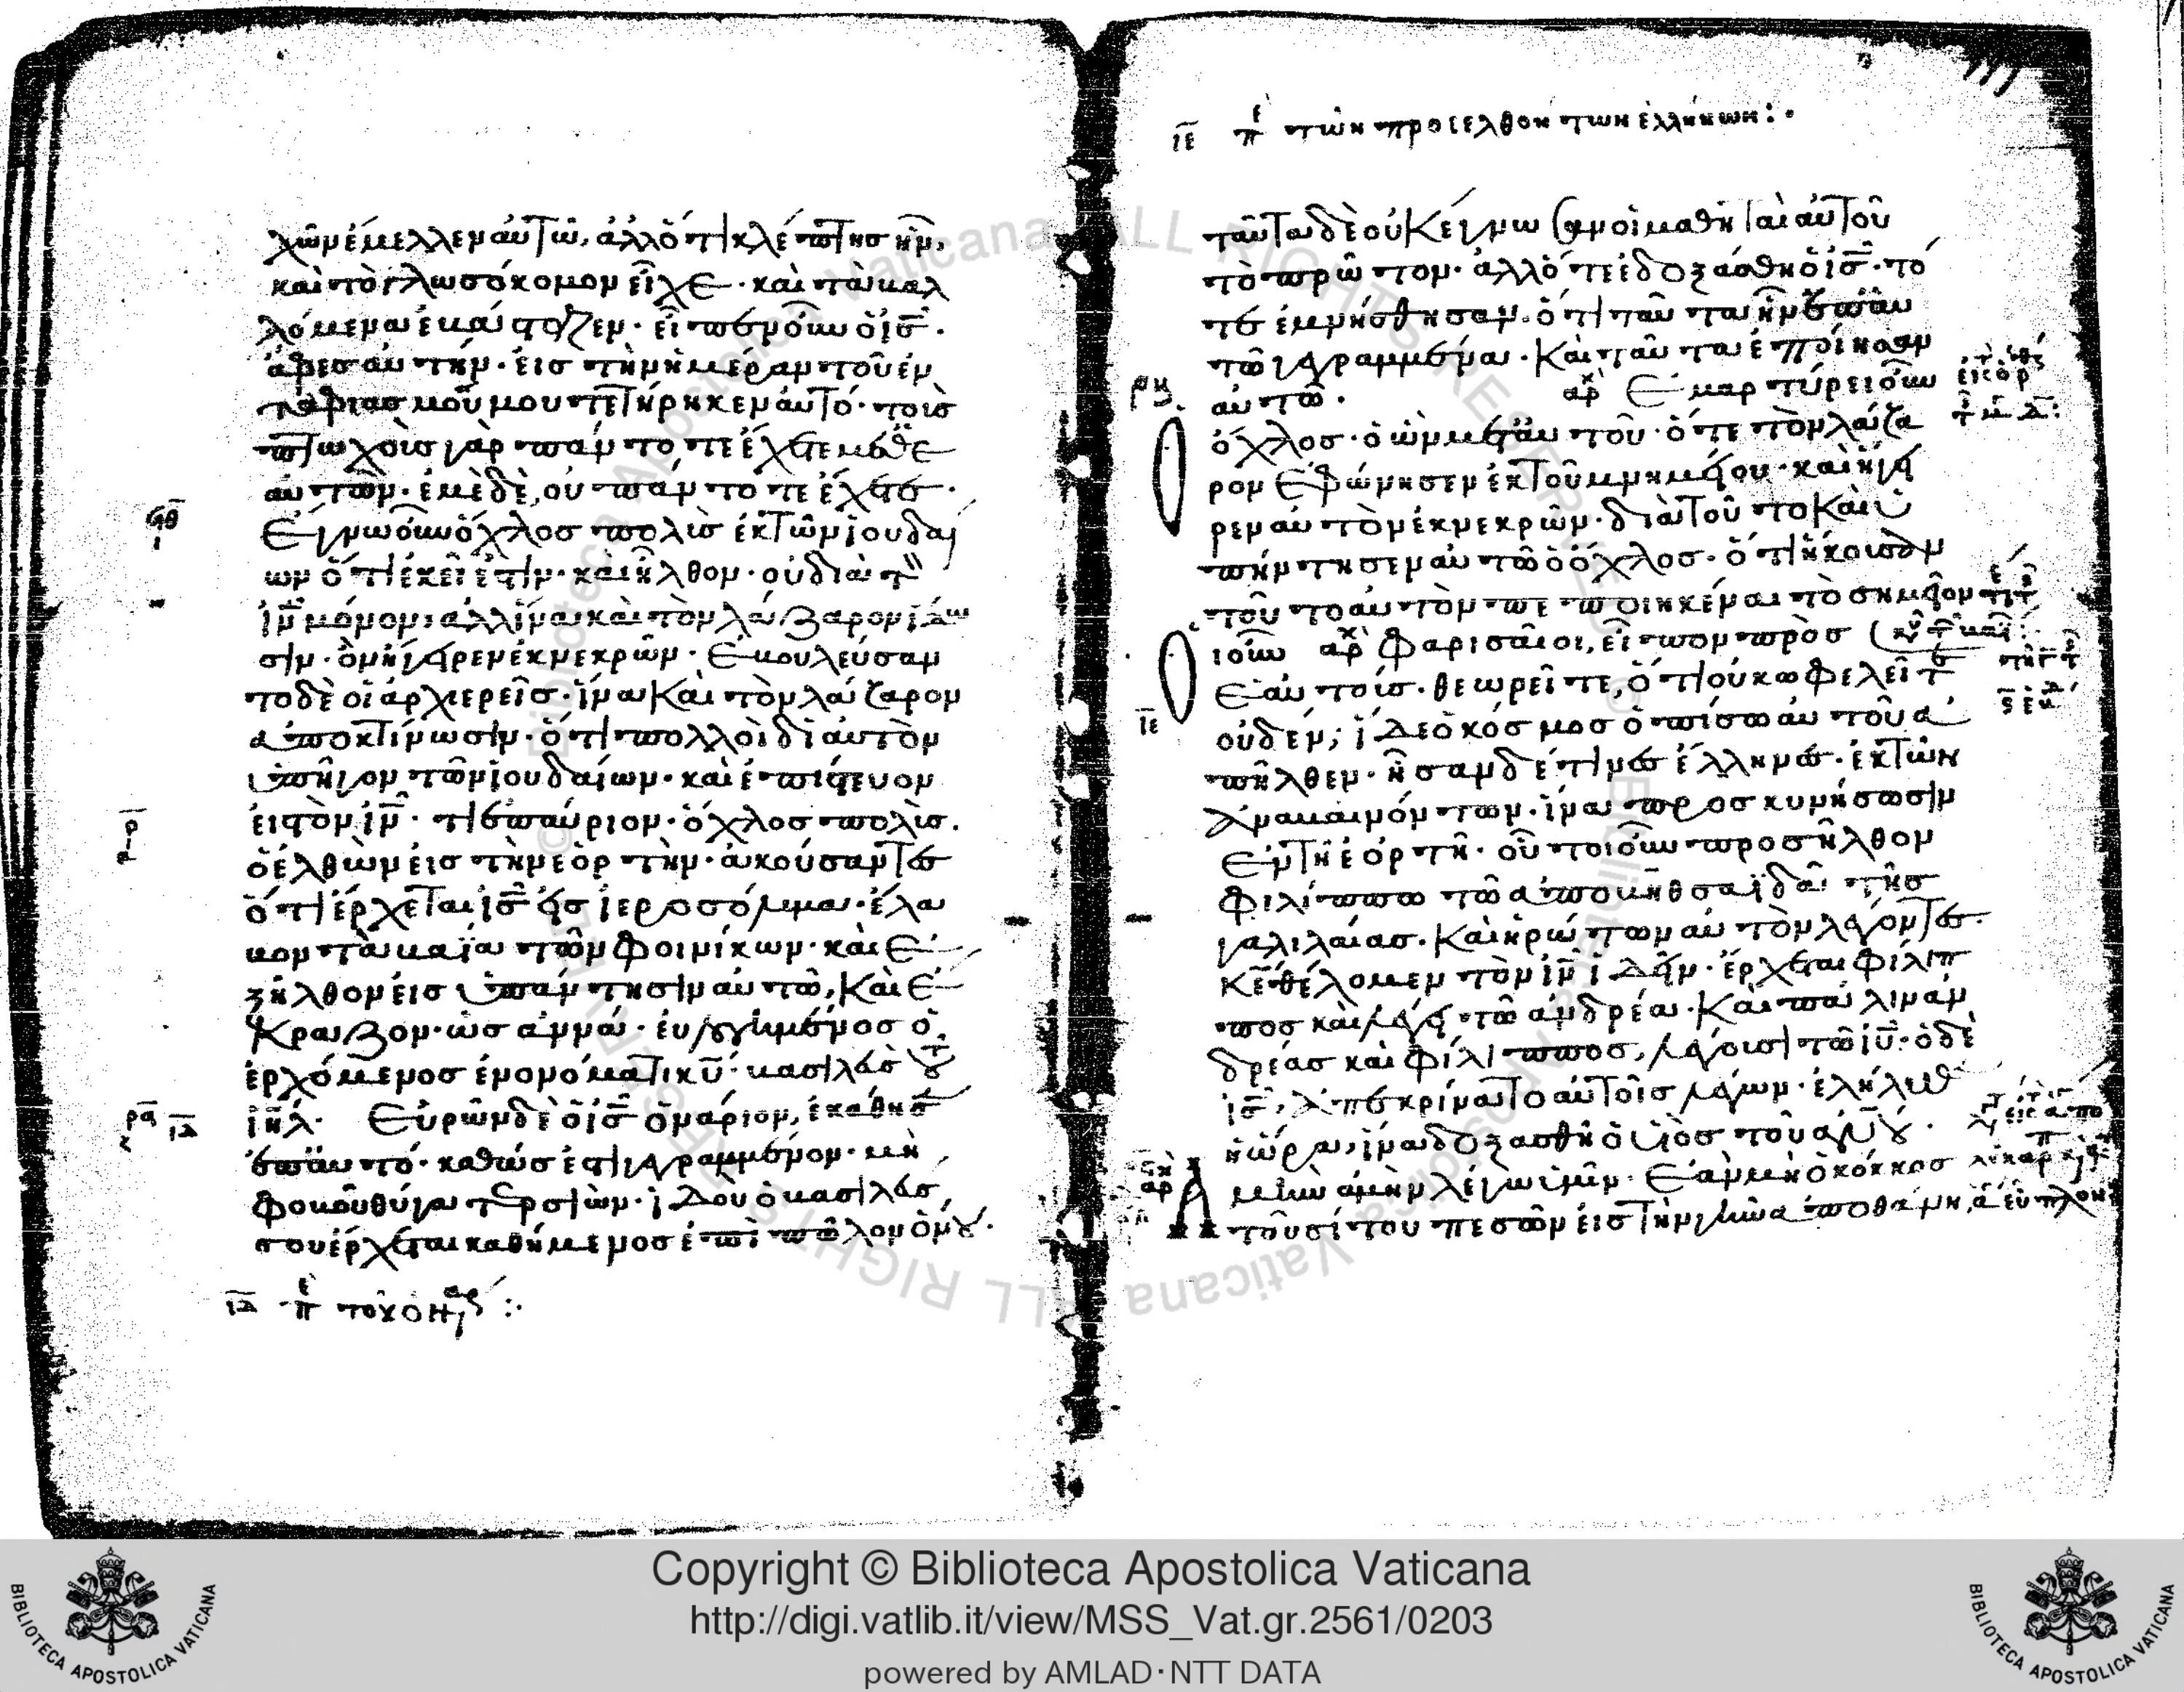 χῶν ἔμελλεν αὐτῶ, ἀλλότι κλέπτησ ἦν,
καὶ τὸ γλωσόκομον εἶχε · καὶ τὰ βαλ
λόμενα ἐβάσταζεν · εἶπεν οὖν ὁ ισ̅ ·
ἄφεσ αὐτήν · εἰσ τὴν ἡμέραν τοῦ ἐν
ταφιασμοῦ μου τετήρηκεν αὐτό · τοὺσ
πτωχοὺσ γὰρ πάντοτε ἔχετε μεθε
αὐτῶν · ἐμὲ δὲ, οὐ πάντοτε ἔχετε ·
Ἔγνω οὖν ὄχλοσ πολὺσ ἐκ τῶν ἰουδαί
ων ὅτι ἐκεῖ ἐστιν · καὶ ἦλθον · οὐ διὰ τ
ιν̅ μόνον, ἀλλ ἵνα καὶ τὸν λάζαρον ἴδω
σιν · ὃν ἤγειρεν ἐκ νεκρῶν · Ἐβουλεύσαν
το δὲ οἱ ἀρχιερεῖσ · ἵνα καὶ τὸν λάζαρον
ἀποκτίνωσιν · ὅτι πολλοὶ δι αὐτὸν
ὑπῆγον τῶν ἰουδαίων · καὶ ἐπίστευον
εἰσ τὸν ιν̅ · τῆ ἐπαύριον · ὄχλοσ πολὺσ ·
ὁ ἐλθὼν εἰσ τὴν ἑορτὴν · ἀκούσαντεσ
ὅτι ἔρχεται ισ̅ εἰσ ἱεροσόλυμα · ἔλα
βον τὰ βαΐα τῶν φοινίκων · καὶ ἐ
ξῆλθον εἰσ ὑπάντησιν αὐτῶ, καὶ ἔ
κραζον · ὡσ αννά · εὐλογημένοσ ὁ
ἐρχόμενοσ ἐν ονόματι κυ̅ · βασιλεὺσ τοῦ
ιηλ̅ · Εὑρῶν δὲ ὁ ισ̅ ὀνάριον, ἐκάθησ
ἐπ αὐτό · καθώσ ἐστι γεγραμμένον · μὴ
φοβοῦ θύγατερ σιών · ἰδοὺ ὁ βασιλεύσ
σου ἔρχεται καθήμενοσ ἐπὶ πῶλον ὄνου ·
ιδ π τοῦ ὄν :·
ιε π τῶν προσελθόντων ἑλλήνων :·
ταῦτα δὲ οὐκ ἔγνωσαν οἱ μαθηταὶ αὐτοῦ
τὸ πρῶτον · ἀλλότε ἐδοξάσθη ὁ ισ̅ · τό
τε ἐμνήσθησαν · ὅτι ταῦτα ἦν ἐπ αὐ
τῶ γεγραμμένα · καὶ ταῦτα ἐποίησαν
αὐτῶ · ἀρ Ἐμαρτύρει οὖν
ὄχλοσ · ὁ ὢν μετ αὐτοῦ · ὅτε τὸν λάζα
ρον ἐφώνησεν ἐκ τοῦ μνημείου · καὶ ἤγει
ρεν αὐτὸν ἐκ νεκρῶν · διὰ τοῦτο καὶ ὑ
πήντησεν αὐτῶ ὁ ὄχλοσ · ὅτι ἤκουσαν
τοῦτο αὐτὸν πεποιηκέναι τὸ σημεῖον
οἱ οὖν ἀρ Φαρισαῖοι, εἶπον πρὸσ
ἑαυτοὺσ · θεωρεῖτε, ὅτι οὐκ ὠφελεῖτ
οὐδέν; ἴδε ὁ κόσμοσ ὀπίσω αὐτοῦ ἀ
πῆλθεν · ἦσαν δέ τινεσ ἕλληνεσ · ἐκ τῶν
ἀναβαινόντων · ἵνα προσκυνήσωσιν
ἐν τῆ ἑορτῆ · οὗτοι οὖν προσῆλθον
φιλίππω τῶ ἀπο βηθσαϊδὰ τῆσ
γαλιλαίασ · καὶ ἠρώτων αὐτὸν λέγοντεσ ·
κε̅ θέλομεν τὸν ιν̅ ἰδεῖν · ἔρχεται φίλιπ
ποσ καὶ λέγει τῶ ἀνδρέα · καὶ πάλιν ἀν
δρέασ καὶ φίλιπποσ, λέγουσι τῶ ιυ̅ · ὁ δὲ
ισ̅, ἀπεκρίνατο αὐτοῖσ λέγων · ἐλήλυθ
ἡ ὥρα, ἵνα δοξασθῆ ὁ υἱὸσ τοῦ ανου ·
Ἀμὴν ἀμὴν λέγω ὑμῖν · Ἐὰν μὴ ὁ κόκκοσ
τοῦ σίτου πεσὼν εἰσ τὴν γῆν ἀποθάνη,